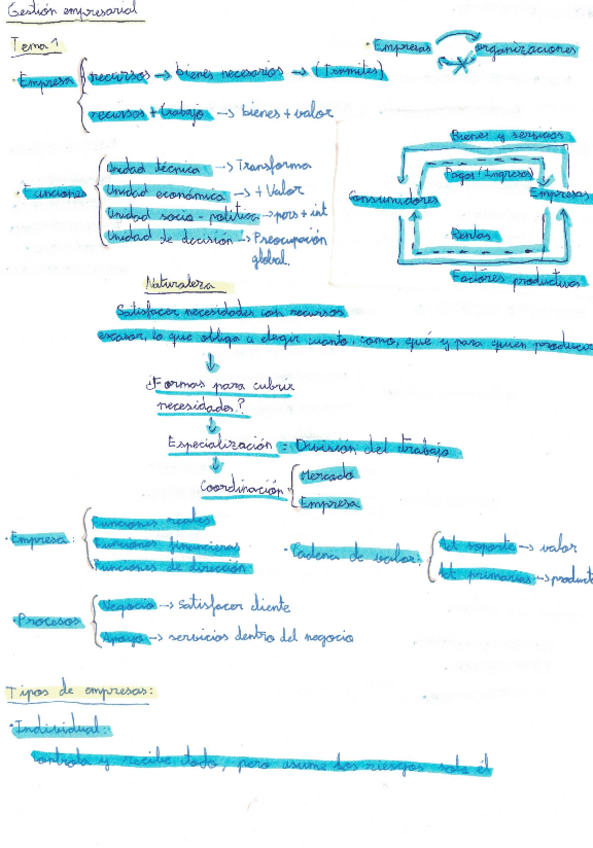 Gestión empresarial
Tema 1
· Empresas organizaciones
· Empresa recursos → bienes necesarios → (Trámites)
recursos + trabajo → bienes + valor
Bienes y servicios
Pagos/Ingresos
Consumidores Empresas
Rentas
Factores productivos
· Funciones
Unidad técnica → Transforma
Unidad económica → + Valor
Unidad socio-política → pers + int
Unidad de decisión → Preocupación
global.
Naturaleza
Satisfacer necesidades con recursos
escasos, lo que obliga a elegir cuanto, como, qué y para quien producir
¿Formas para cubrir
necesidades?
Especialización = División del trabajo
Coordinación
Mercado
Empresa
· Empresa:
Funciones reales
Funciones financieras
Funciones de dirección
· Cadena de valor:
Act soporte → valor
Act primarias → product
· Procesos
Negocio → satisfacer cliente
Apoyo → servicios dentro del negocio
Tipos de empresas:
· Individual:
Controla y recibe todo, pero asume los riesgos solo él